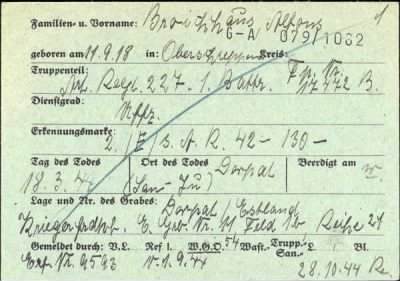 Familien- u. Vorname: Broichhaus Alfons 1
G-A 079/1062
geboren am 11.9.18 in: Kreis:
Truppenteil: Art. Regt. 227. 1. Battr. F.P. Nr. 17472 B.
Dienstgrad: Uffz.
Erkennungsmarke: 2. /E/ s. A. R. 42 – 130 –
Tag des Todes Ort des Todes Dorpat Beerdigt am
18.3.44 (San-
Lage und Nr. des Grabes: Dorpat / Estland
E. Grb. Nr. 11 Feld 1b Reihe 21
Gemeldet durch: V.L. Ref 1. W.G.O. 54 Wast.- Trupp.- L. Bl.
San.-
Nr. 9593 v. 1.9.44 28.10.44